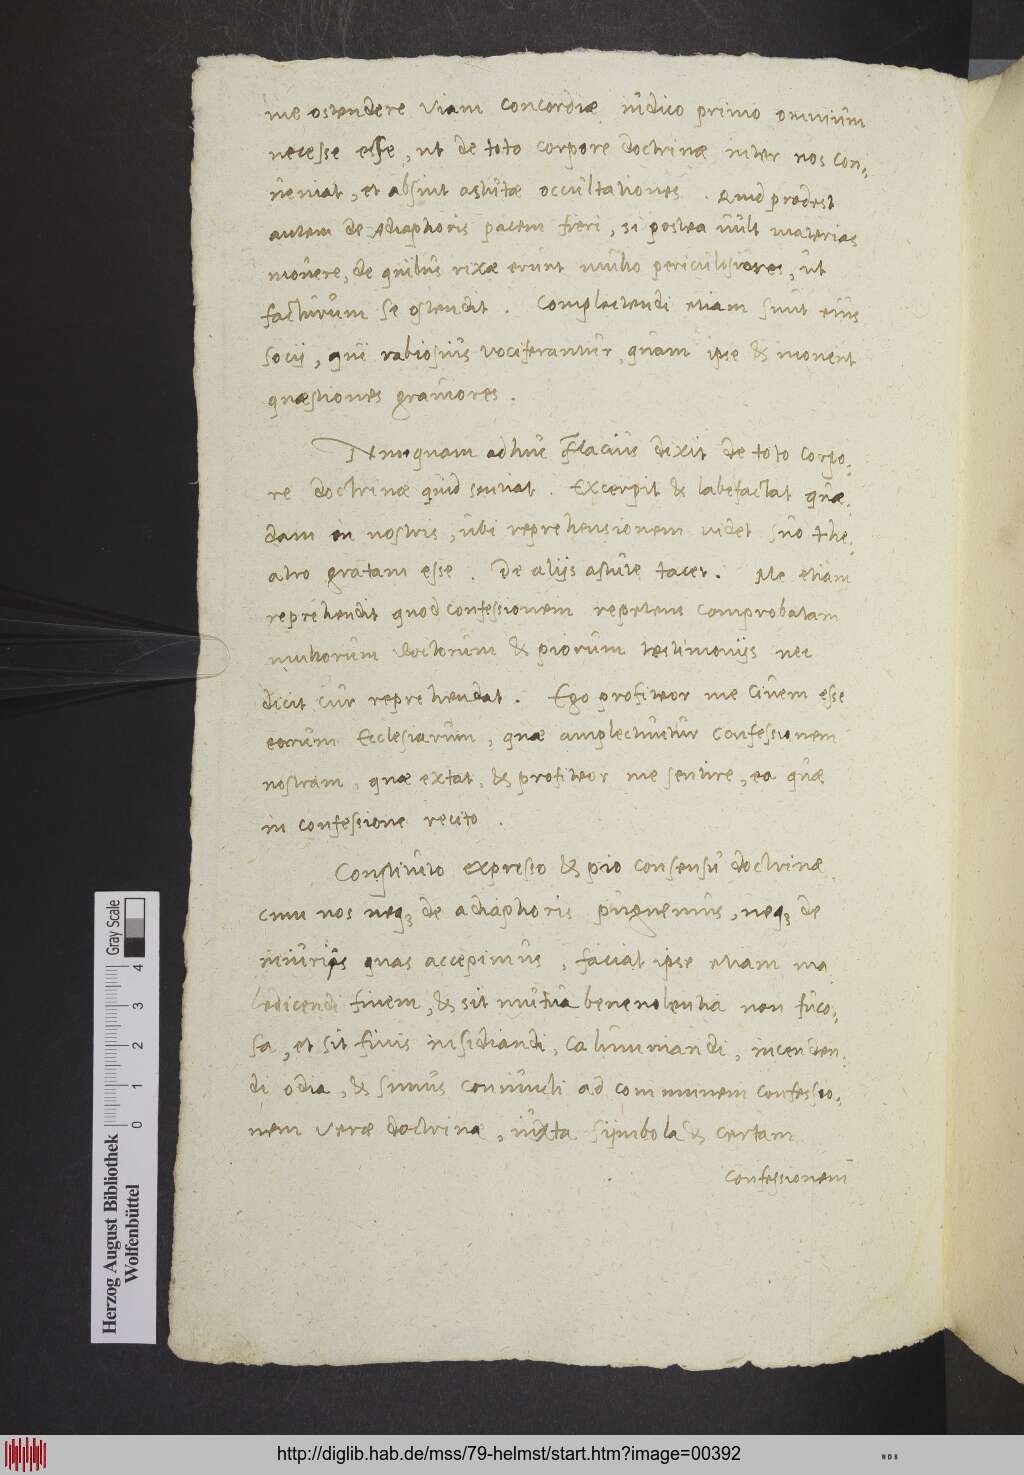 me ostendere viam concordiæ iudico primo omnium
necesse esse, ut de toto corpore doctrinæ inter nos con-
ueniat, et absint astutæ occultationes. Quid prodest
autem de Adiaphoris pacem fieri, si postea uult materias
mouere, de quibus rixæ erunt multo periculosiores, ut
facturum se ostendit. Complectendi etiam sunt eius
socij, qui rabiosius vociferantur, quam ipse & mouent
quæstiones grauiores.
Nunquam adhuc Flacius dixit de toto corpo-
re doctrinæ quid sentiat. Excerpit & labefactat quæ-
dam in nostris, ubi reprehensionem uidet suo the-
atro gratam esse. De alijs astute tacet. Me etiam
reprehendit quod confessionem repetens comprobatam
multorum doctorum & piorum testimonijs nec
dicit cur reprehendat. Ego profiteor me ciuem esse
eorum Ecclesiarum, quæ amplectuntur confessionem
nostram, quæ extat, & profiteor me sentire, ea quæ
in confessione recito.
Constituto expresso & pio consensu doctrinæ
cum nos neq3 de adiaphoris pugnemus, neq3 de
iniurijs quas accepimus, faciat ipse etiam ma
ledicendi finem, & sit mutua beneuolentia non fuco-
sa, et sit finis insidiandi, calumniandi, incenden-
di odia, & simus coniuncti ad communem confessio-
nem veræ doctrinæ, iuxta symbola & certam
confessionem
Herzog August Bibliothek
Wolfenbüttel
Gray Scale
0 1 2 3 4
http://diglib.hab.de/mss/79-helmst/start.htm?image=00392